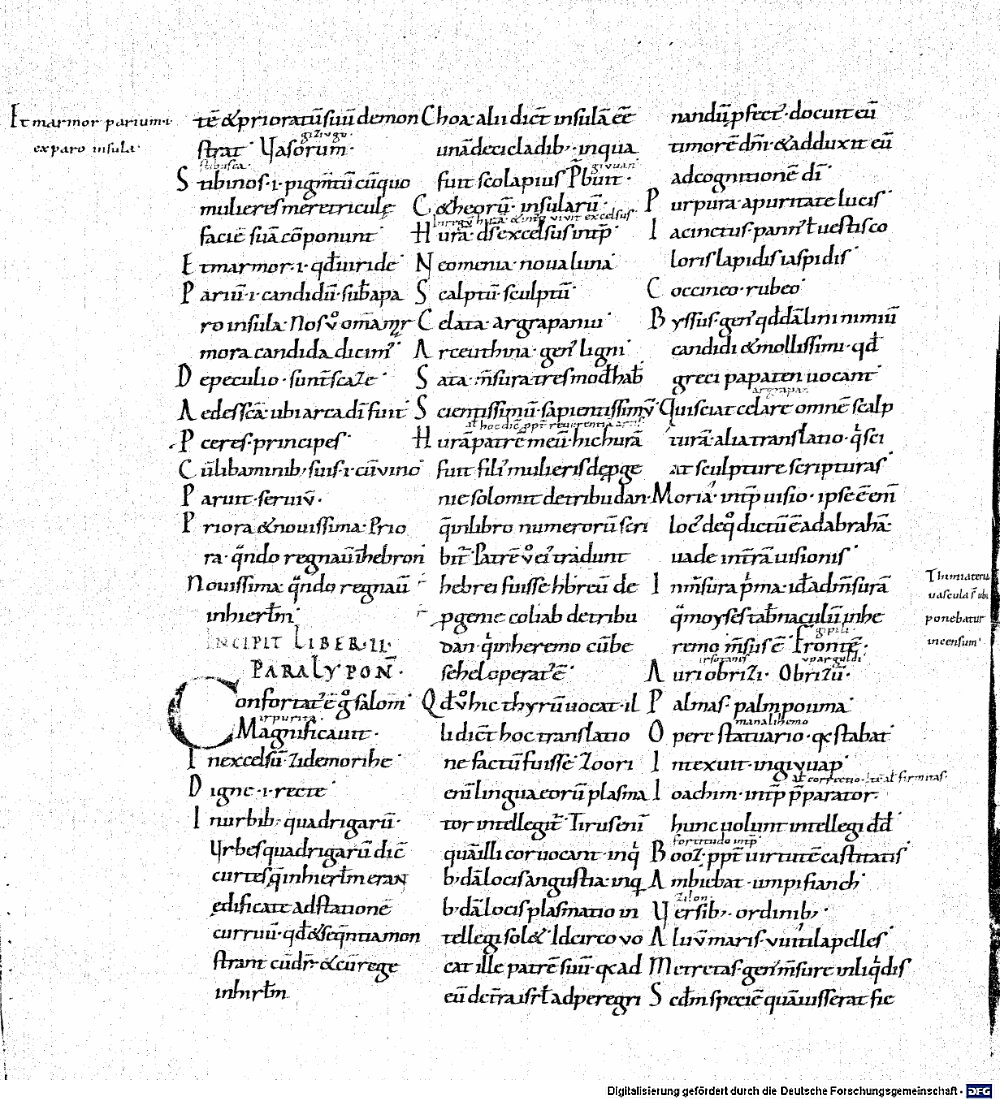 Et marmor parium·i·
ex paro insula·
tē & prioratū suū demon
gizivgv·
strat· Vasorum·
stibusca·
Stibinos·i·pigm̄tū cūquo
mulieres meretriculę
faciē suā cōponunt·
Et marmor·i·qđ viride·
Pariū·i·candidū·
ro insula· Nos
mora candida dicim᷒
De peculio·sunt scaze·
Aedes s̄cā· ubi arca dī fuit·
Pceres·principes·
Cū libaminib; suis·i·cū vino
Paruit·serviv̄·
Priora & nouissima· Prio
ra· q̄ndo regnau̅ īhebron
Nouissima· q̄ndo regnau̅
inhierl̄m·
INCIPIT LIBER·II·
PARALYPOÑ·
Confortat᷒ ē g° salom̄·
irpurita·
Magnificauit·
In excelsū· zi demo rihe·
Digne·i·recte·
In urbib;· quadrigarū·
Vrbes quadrigarū dic̄
curtes q̄ inhierl̄m eran
edificate ad statione
curruū· qđ & seq̄ntia mon
strant cūdr̄· & cū rege
inhirl̄m
Choa· alii dic̄t insulā ēē
unā de cicladib;· in qua
givuari
fuit scolapius P̄buit·
C&heorū· insularū·
Hurā· dˢ excelsus intp̄·
Neomenia· noua luna·
Scalptū· sculptū·
Celata· argrapaniu·
Arceuthina· gen᷒ ligni·
Sata· m̄sura tres mod̄ hab̄·
Scientissimū· sapientissimv̄·
Hurā patrē meū· hic hurā
fuit fili᷒ mulieris de pge
nie solomit de tribu dan·
q̄ in libro numerorū scri
bit᷒· Patrē v° ei᷒ tradunt
hebrei fuisse hbreū de
pgenie coliab de tribu
dan· q̄ in heremo cū be
sehel operat᷒ ē·
Qđ v° hic thyrū uocat· il
li dic̄t hoc translatio
ne factū fuisse· Zoor i
eni̅ lingua eorū plasma
tor intellegit᷒· Tirus eni̅
quā illi cor uocant· inq
b;dā locis angustia· inq
b;dā locis plasmatio in
tellegi sol&· Idcirco vo
cat ille patrē suū· qᷓ ad
eū de t̄ra isrł ad peregri
nandū pfect᷒· docuit eū
timorē dn̄i· & adduxit eū
ad cognitionē dī·
Purpura· a puritate lucis·
Iacinctus· pann᷒ ł uestis co
loris lapidis iaspidis·
Coccineo· rubeo·
Byssus· gen᷒ qddā lini nimiū
candidi & mollissimi· qđ
greci papaten uocant·
argrapan·
Qui sciat celare omnē scalp
turā· alia translatio· q̄ sci
at sculpture scripturas·
Moria· intp̄ uisio· ipse ē eni̅
loc᷒ de q° dictū ē ad abrahā·
uade in t̄rā uisionis·
In m̄sura p̄ma· id ad m̄surā
q̄ moyses tab̄naculū in he
remo m̄sus ē· Frontē·
Auri obrizi· Obrizū·
Palmas· palmpouma·
manalihemo
Opere statuario· qᷓ stabat·
Intexuit· ingivuap·
Ioachim· intp̄ p̄parator·
hunc uolunt intellegi dđ
fortitudo intp̄
Booz· ppt̄ uirtutē castitatis·
Ambiebat· umpifianch·
zilon·
Versib;· ordinib;·
Aluv̄ maris· vuitilapelles·
Metretas· gen᷒ m̄sure in liq̄dis
Sedm̄ speciē quā iusserat fie
Thimiateria
vascula
ponebatur
incensum·
Digitalisierung gefördert durch die Deutsche Forschungsgemeinschaft - DFG